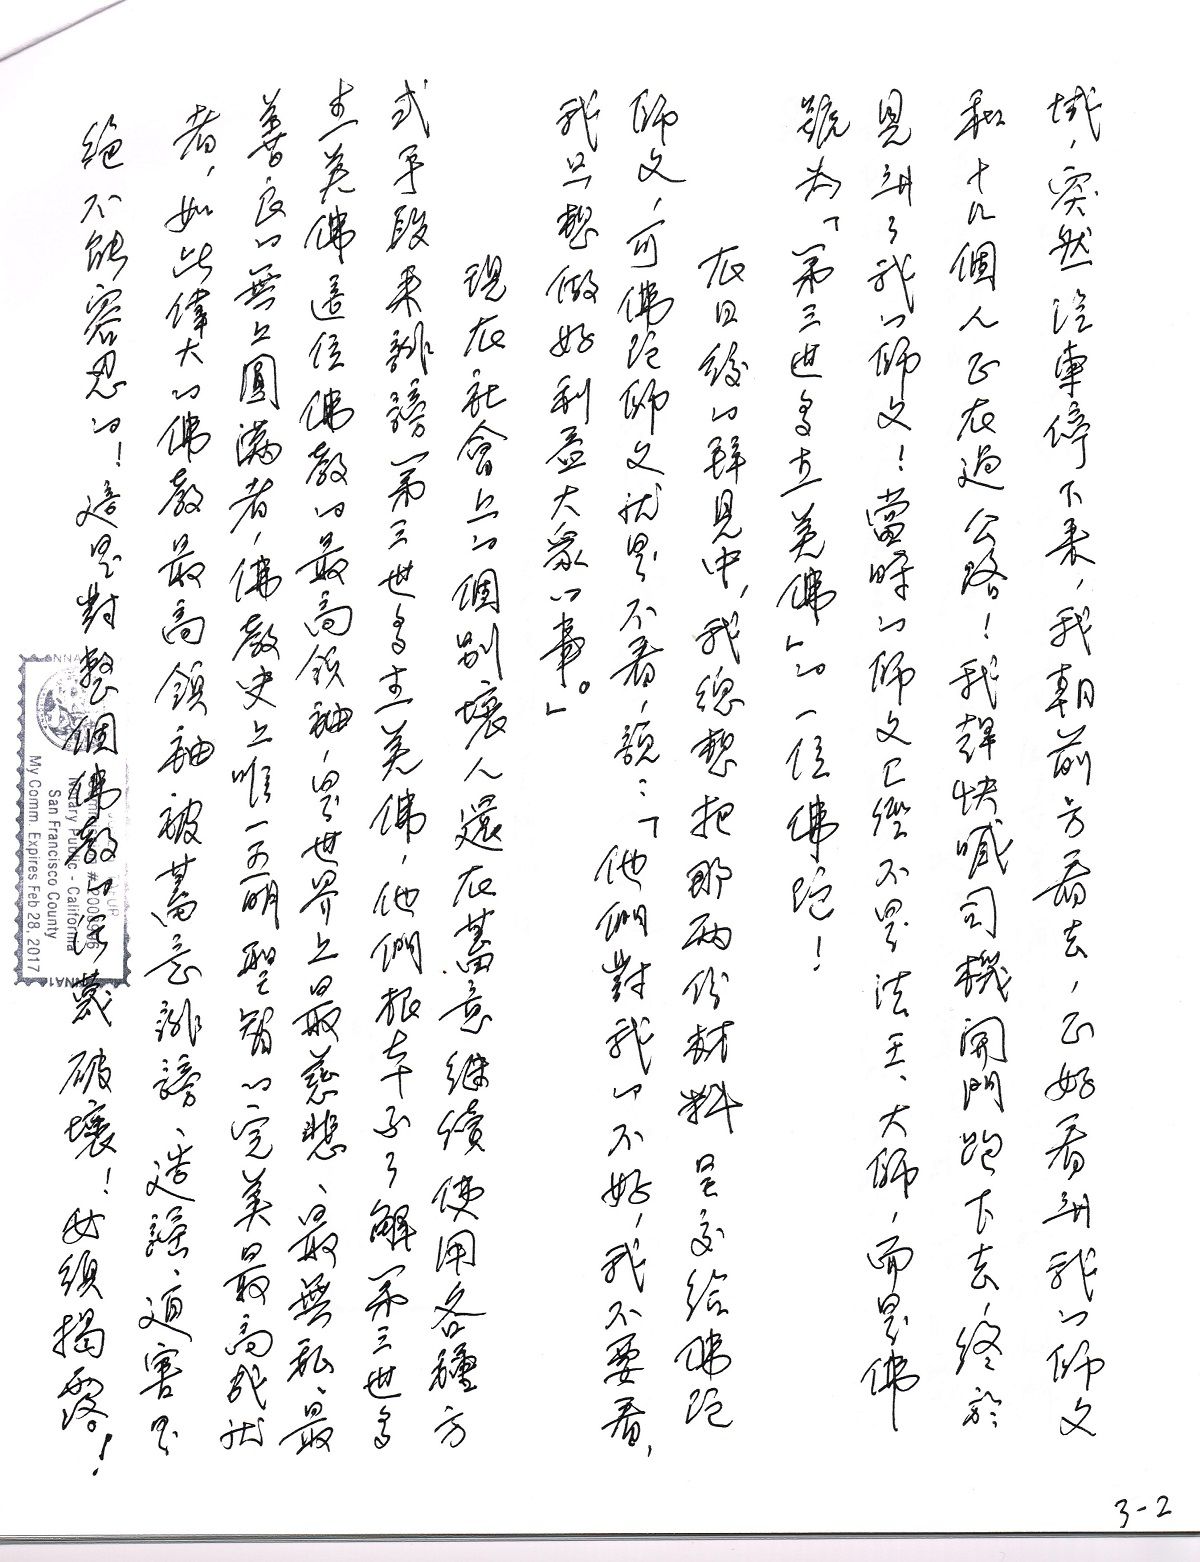 域，突然汽車停下來，我朝前方看去，正好看到我的師父
和十几個人正在過公路！我趕快喊司機開門跑下去，終於
見到了我的師父！當時的師父已經不是法王、大師，而是佛
號為「第三世多杰羌佛」的一位佛陀！
在日後的拜見中，我總想把那兩份材料呈交給佛陀
師父，可佛陀師父就是不看，說：「他們對我的不好，我不要看，
我只想做好利益大眾的事。」
現在社會上的個別壞人還在蓄意继續使用各種方
式手段來誹謗第三世多杰羌佛，他們根本不了解第三世多
杰羌佛這位佛教的最高領袖，是世界上最慈悲、最無私、最
善良的無上圓滿者，佛教史上唯一五明聖智的完美最高成就
者，如此偉大的佛教最高領袖被蓄意誹謗、造謠、迫害是
絕不能容忍的！這是對整個佛教的誣衊破壞！必須揭露！
Notary Public - California
San Francisco County
My Comm. Expires Feb 28, 2017
3-2